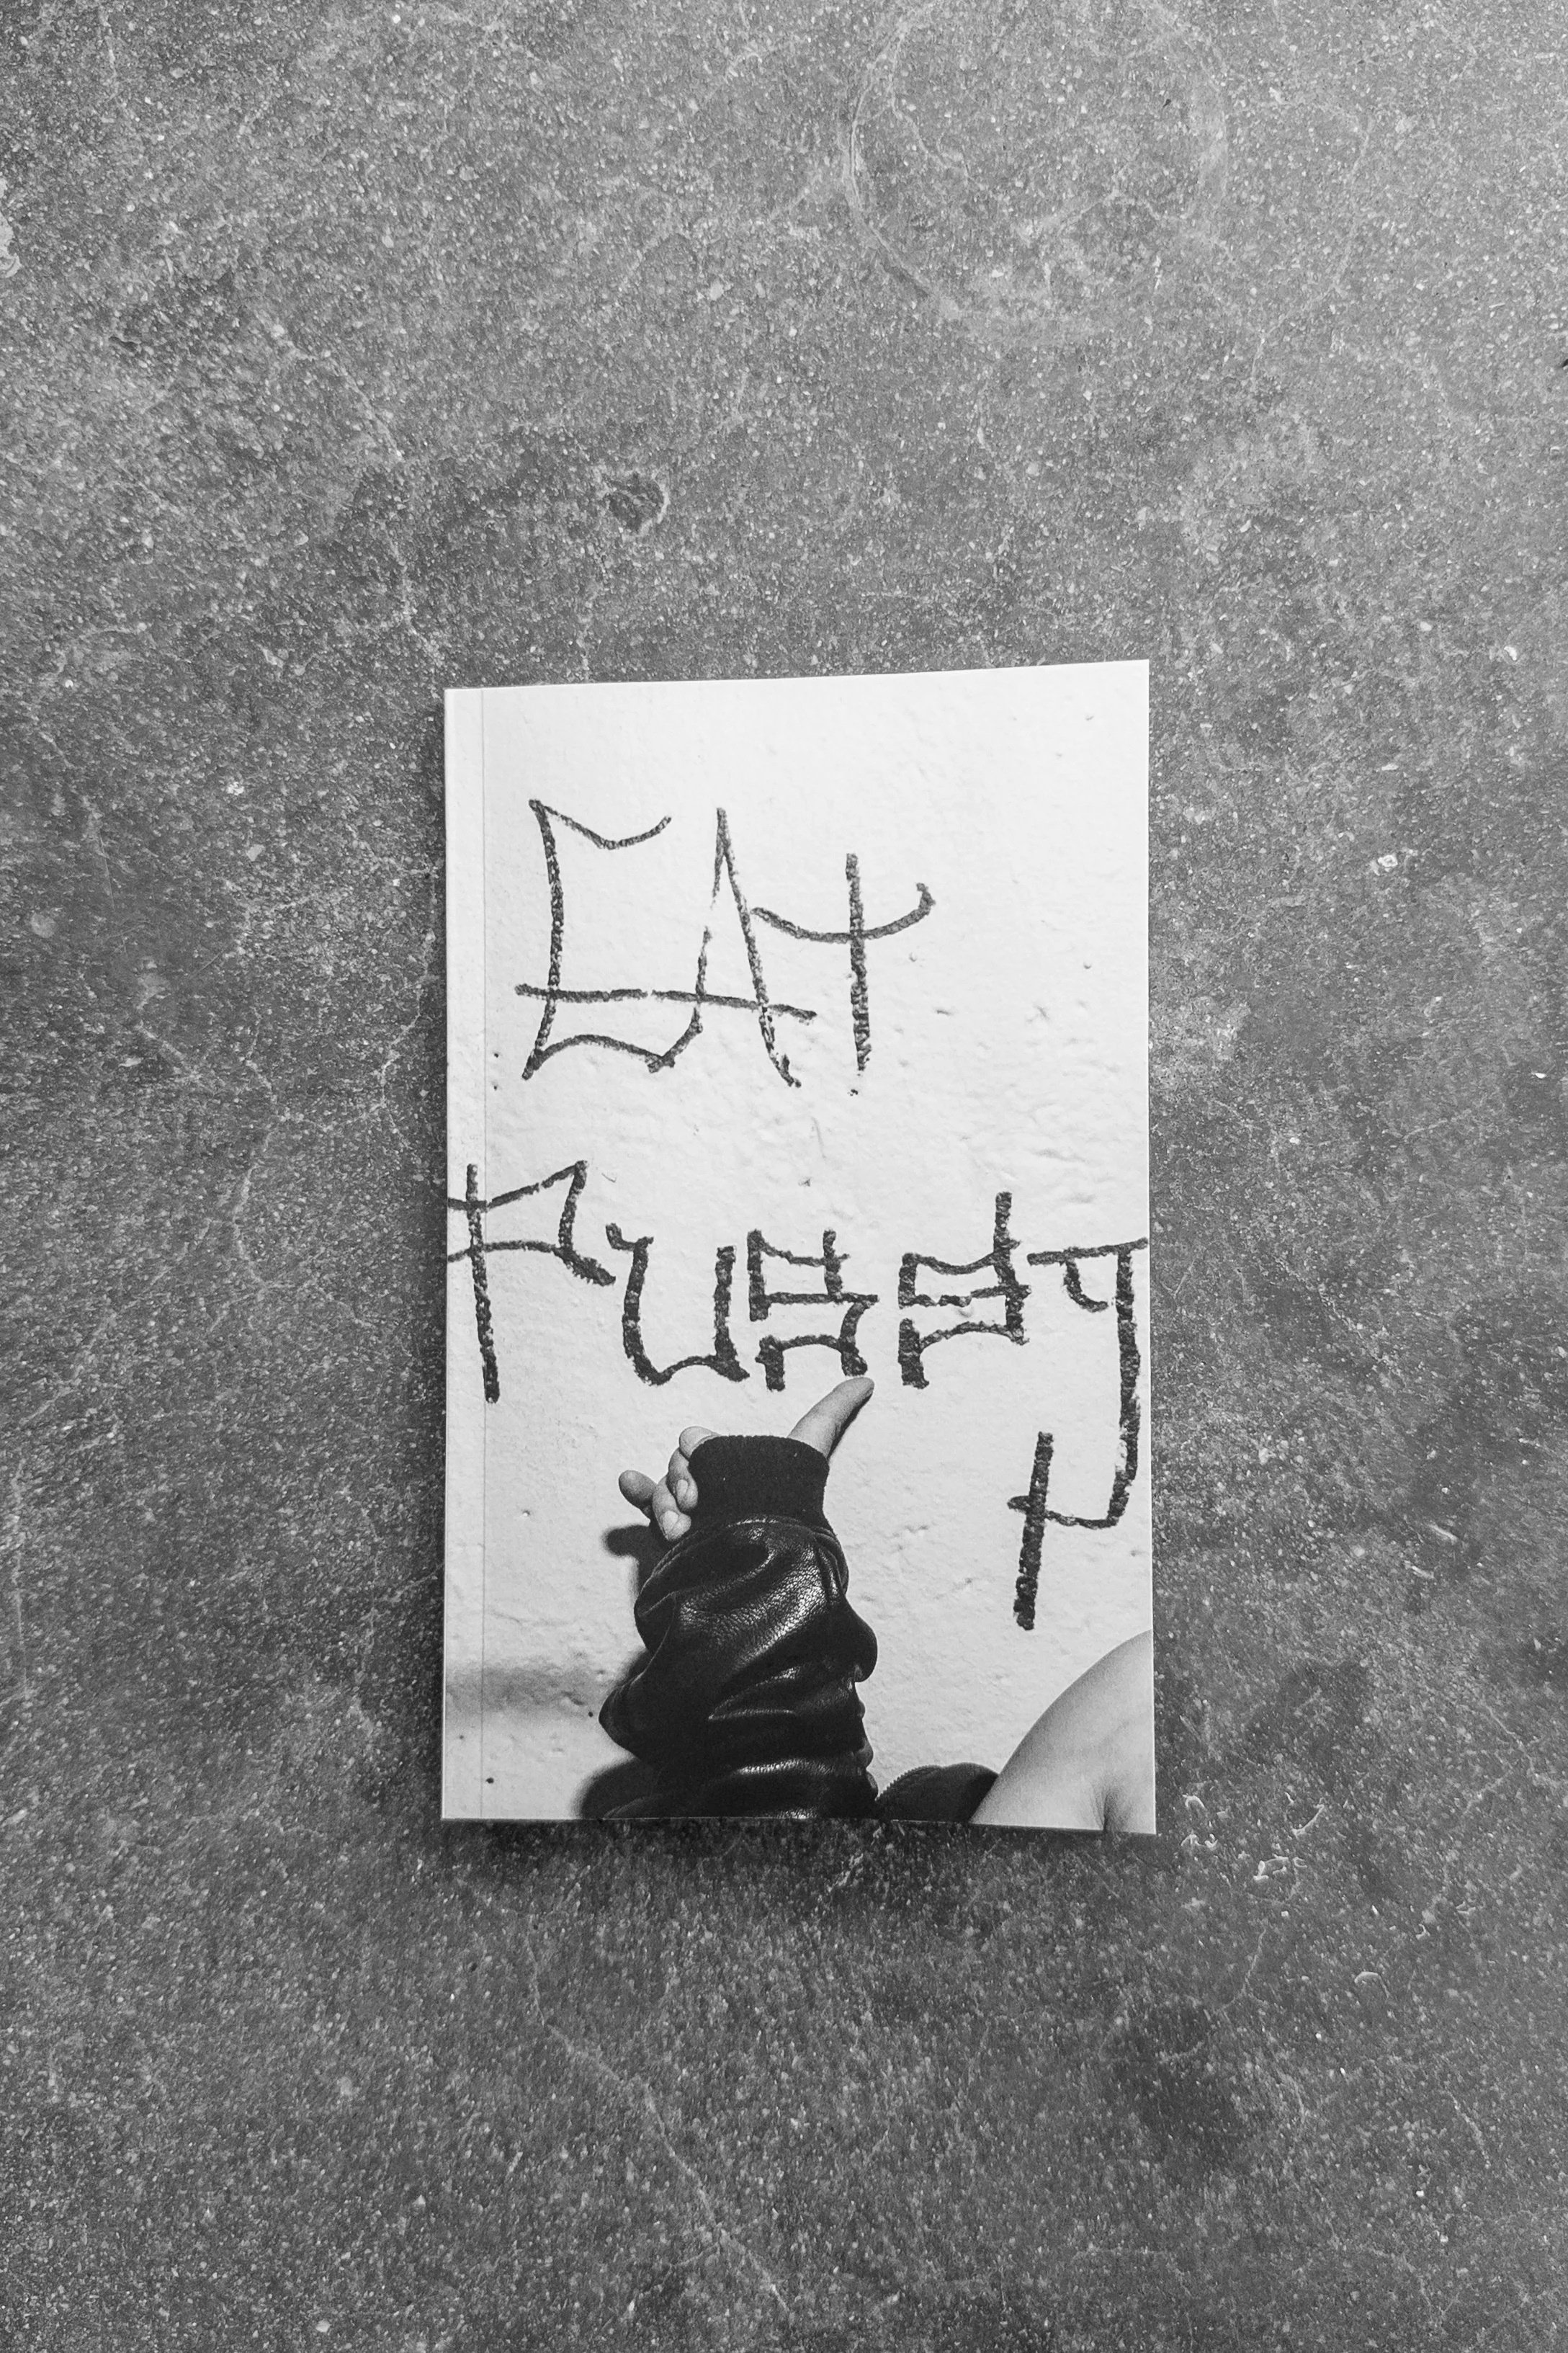 EAt
PUSSY